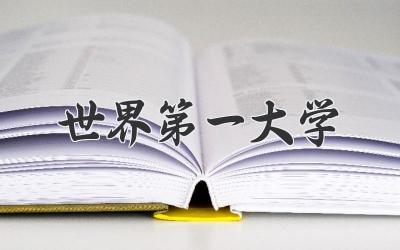 世界第一大学